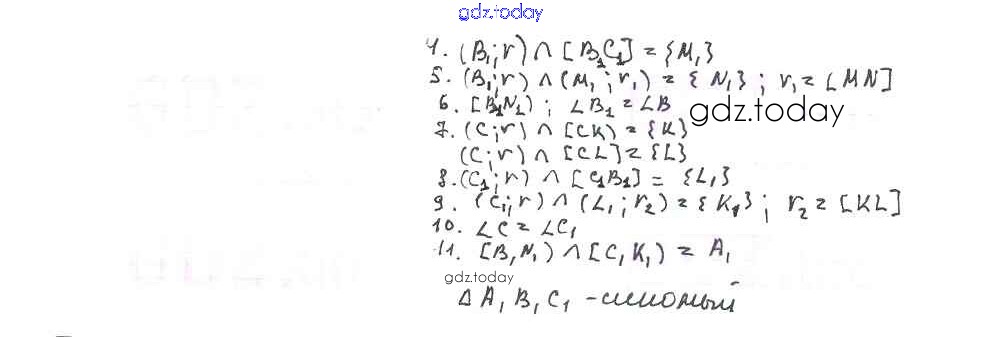 gdz.today
4. (B₁;r) ∩ [B₁C₁] = {M₁}
5. (B₁;r) ∩ (M₁;r₁) = {N₁}; r₁ = [MN]
6. [B₁N₁); ∠B₁ = ∠B
gdz.today
7. (C;r) ∩ [CK) = {K}
(C;r) ∩ [CL] = {L}
8. (C₁;r) ∩ [C₁B₁] = {L₁}
9. (C₁;r) ∩ (L₁;r₂) = {K₁}; r₂ = [KL]
10. ∠C = ∠C₁
11. [B₁N₁) ∩ [C₁K₁) = A₁
gdz.today
Δ A₁B₁C₁ - искомый